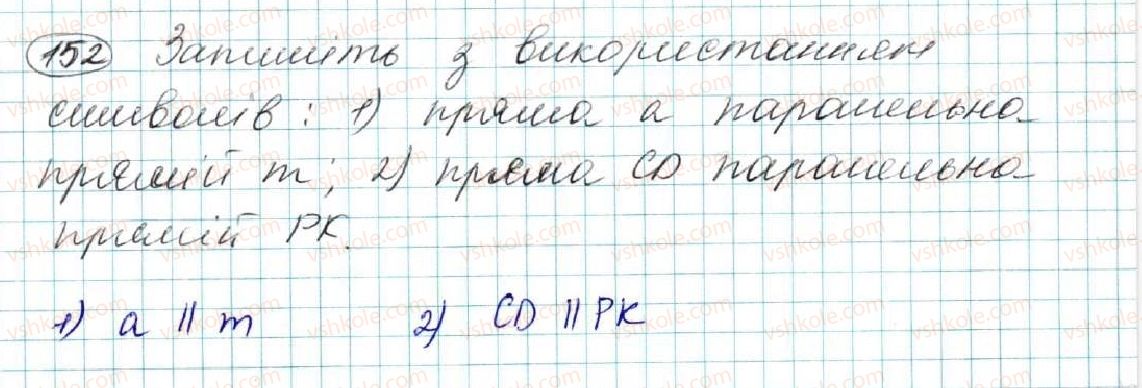 152 Запишіть з використанням
символів : 1) пряма a паралельна
прямій m; 2) пряма CD паралельна
прямій PK.
1) a || m 2) CD || PK